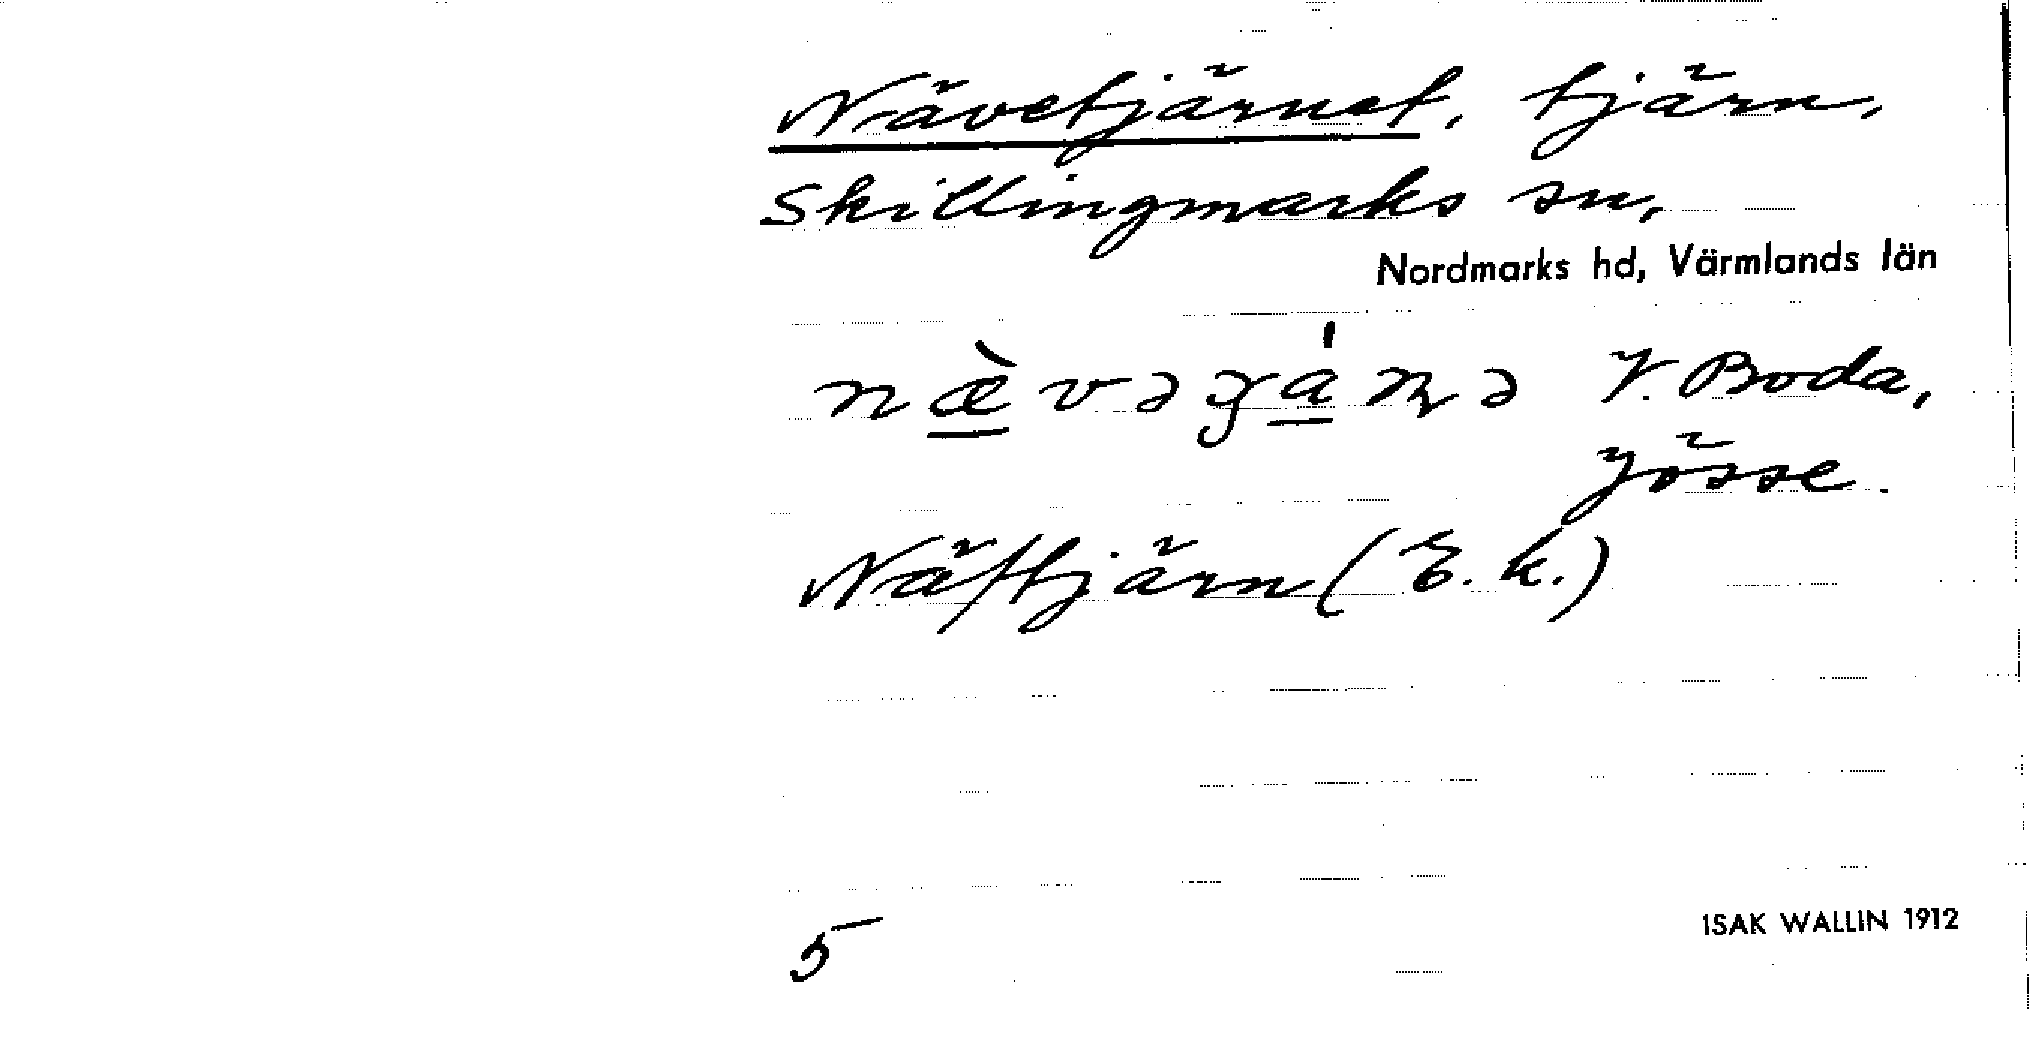 Nävetjärnet, tjärn,
Skillingmarks sn,
Nordmarks hd, Värmlands län
V. Boda,
Jösse.
Näftjärn (E. k.)
5
ISAK WALLIN 1912